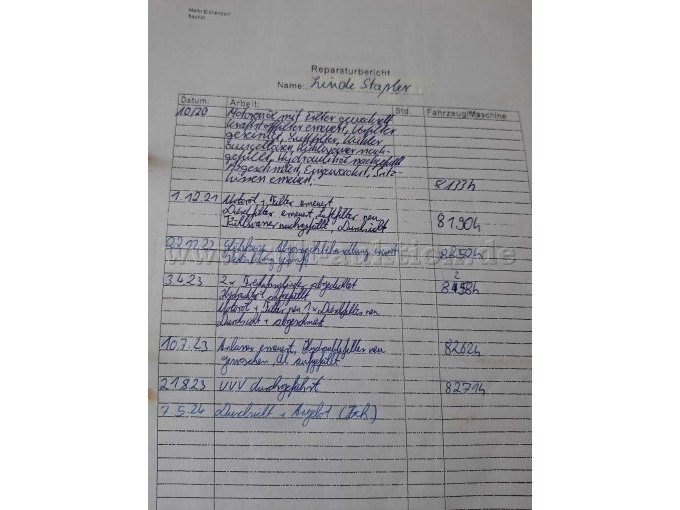 Markt Eichendorf
Bauhof
Reparaturbericht
Name: Linde Stapler
Datum: Arbeit: Std. Fahrzeug/Maschine
10/20 Motoröl mit Filter gewechselt
Kraftstofffilter erneuert,
gereinigt, Luftfilter, Kühler
ausgeblasen, Kühlwasser nach-
gefüllt, Hydrauliköl nachgefüllt
Abgeschmiert, Eingewachst,
erneuert. 8133h
1.12.21 Motoröl + Filter erneuert
Dieselfilter erneuert, Luftfilter neu
Kühlwasser nachgefüllt, Durchsicht 8190h
22.11.22
8250h
3.4.23 2x abgedichtet 8258h
Hydrauliköl aufgefüllt
Motoröl + Filter neu 1x Dieselfilter neu
Durchsicht + abgeschmiert
10.7.23 Anlasser erneuert, Hydraulikfilter neu 8262h
gewaschen, Öl aufgefüllt
21.8.23 UVV durchgeführt 8271h
7.5.24 Durchsicht + Angebot